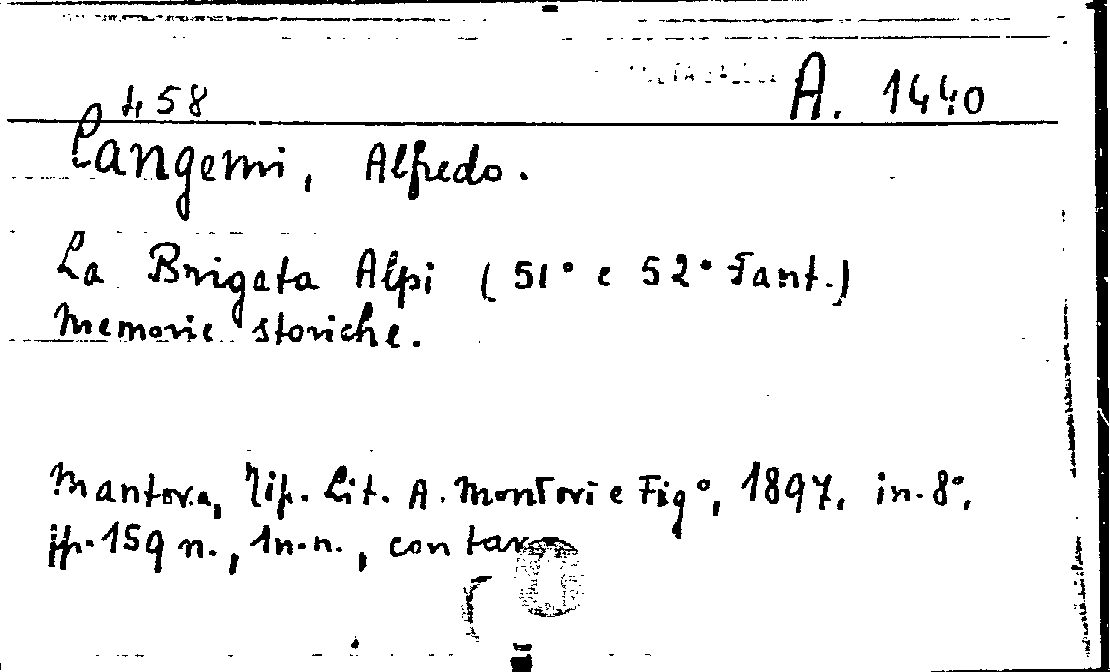 A. 1440
458
Cangemi, Alfredo.
La Brigata Alpi (51° e 52° Fant.)
Memorie storiche.
Mantova, Tip. Lit. A. Montovi e Fig°, 1897, in-8°,
pp. 159 n., 1 n.n., con tav.